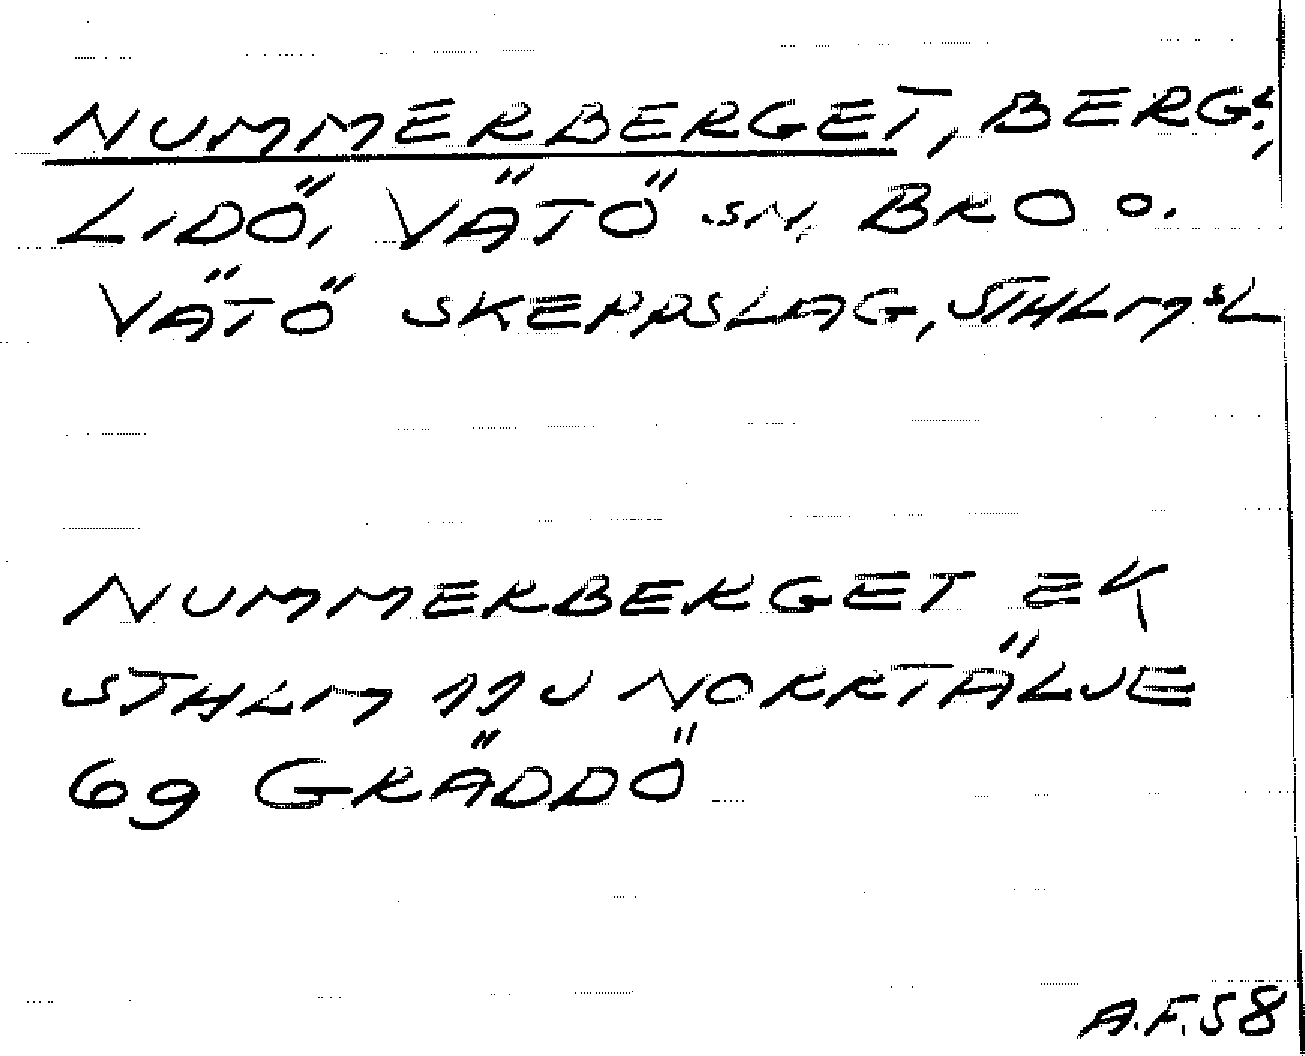 NUMMERBERGET, BERG:,
LIDÖ, VÄTÖ SN, BRO O.
VÄTÖ SKEPPSLAG, STHLMS L
NUMMERBERGET EK
STHLM 11J NORRTÄLJE
69 GRÄDDÖ
A.F.58